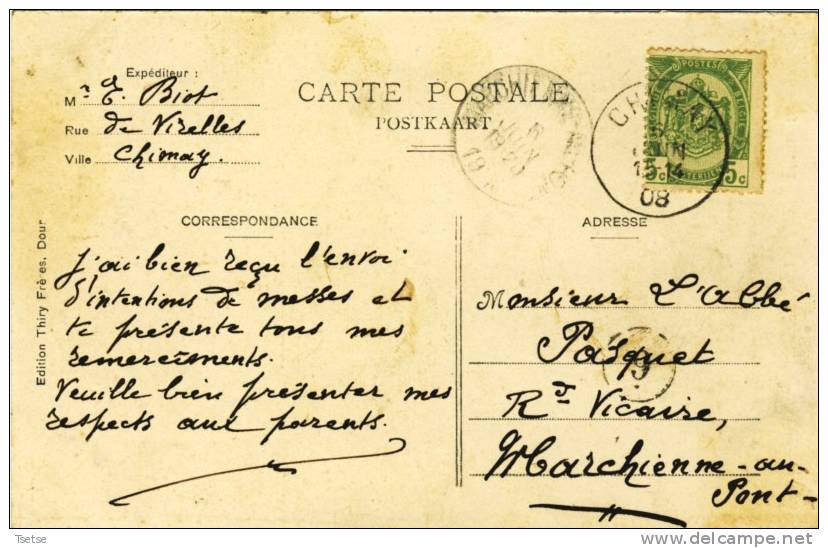 Expéditeur :
Mr E. Biot
Rue de Virelles
Ville Chimay.
CARTE POSTALE
POSTKAART
POSTES
CHIMAY
JUIN
08
5c
5c
CORRESPONDANCE
J'ai bien reçu l'envoi
d'intentions de messes et
te présente tous mes
remerciments.
Veuille bien présenter mes
respects aux parents.
ADRESSE
Monsieur L'Abbé
Pasquet
Rd Vicaire,
Marchienne-au-
Pont-
9
Edition Thiry Frères, Dour
Tsetse